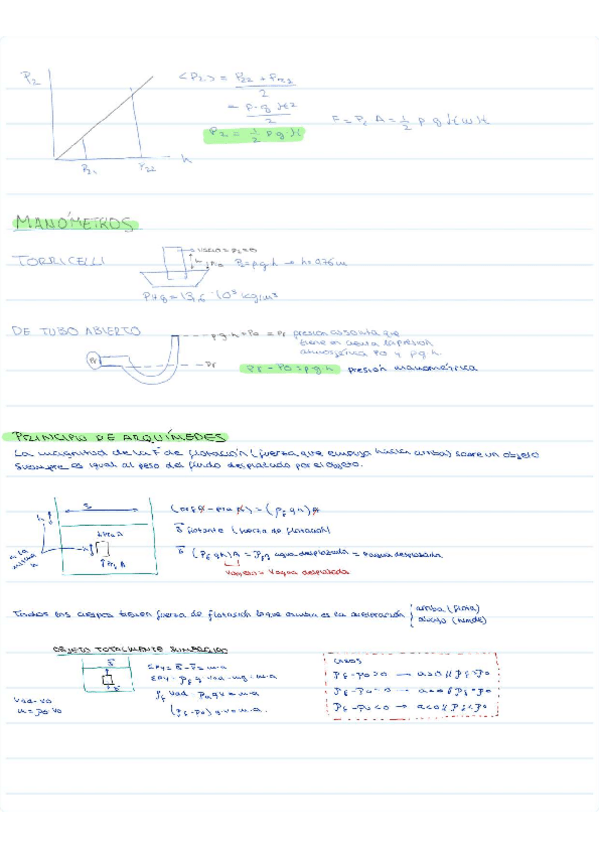 P2
h
P21
P22
<P2> = P22 + P21 / 2
= ρ·g·H / 2
P2 = 1/2 ρ g·H
F = P2 A = 1/2 ρ g H (w H
MANÓMETROS
TORRICELLI
P0 = ρ g h → h = 0.76 m
ρHg = 13,6 · 10³ kg/m³
DE TUBO ABIERTO
ρ g h + P0 = Pr presión absoluta que
tiene en cuenta la presión
atmosférica P0 y ρ g h.
Pr - P0 = ρ g h presión manométrica
PRINCIPIO DE ARQUÍMEDES
La magnitud de la F de flotación (fuerza que empuja hacia arriba) sobre un objeto
siempre es igual al peso del fluido desplazado por el objeto.
= (ρf g h) A
B flotante (fuerza de flotación)
B (ρf g h) A = ρf g agua desplazada = agua desplazada
Vobjeto = Vagua desplazada
Todos los cuerpos tienen fuerza de flotación lo que cambia es la aceleración
arriba (flota)
abajo (hunde)
OBJETO TOTALMENTE SUMERGIDO
ΣFy = B - P = m·a
ΣFy = ρf g Vad - mg = m·a
(ρf - ρo) g·V = m·a.
CASOS
ρf - ρo > 0 → a > 0 // ρf > ρo
ρf - ρo = 0 → a = 0 // ρf = ρo
ρf - ρo < 0 → a < 0 // ρf < ρo